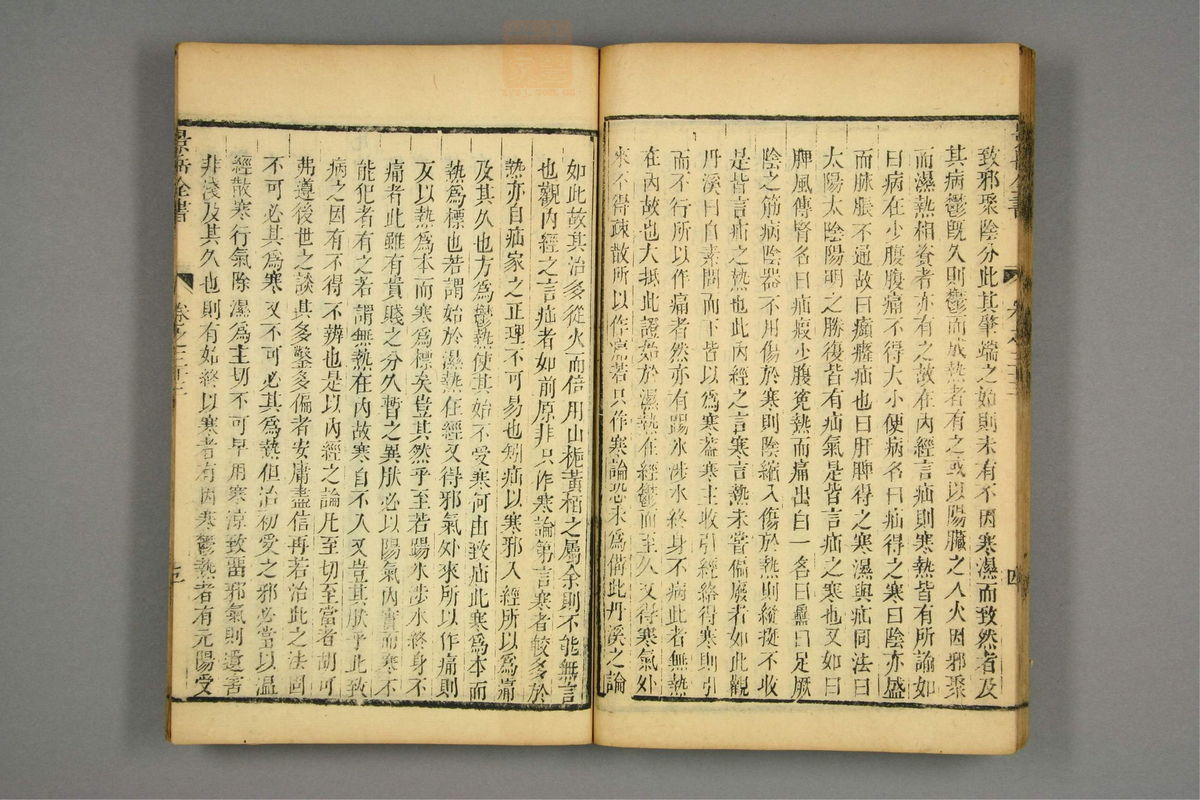 致邪聚陰分此其肇端之始則未有不因寒濕而致然者及
其病鬱既久則鬱而成熱者有之或以陽臟之人火因邪聚
而濕熱相資者亦有之故在內經言疝則寒熱皆有所論如
曰病在少腹腹痛不得大小便病名曰疝得之寒曰陰亦盛
而脉脹不通故曰㿗癃疝也曰肝脾得之寒濕與疝同法曰
太陽太陰陽明之勝復皆有疝氣是皆言疝之寒也又如曰
脾風傳腎名曰疝瘕少腹寃熱而痛出白一名曰蠱曰足厥
陰之筋病陰器不用傷於寒則陰縮入傷於熱則縱挺不收
是皆言疝之熱也此內經之言寒言熱未嘗偏廢者如此觀
丹溪曰自素問而下皆以爲寒蓋寒主收引經絡得寒則引
而不行所以作痛者然亦有踢氷涉水終身不病此者無熱
在內故也大抵此證始於濕熱在經鬱而至久又得寒氣外
來不得疎散所以作痛若只作寒論恐未爲備此丹溪之論
四
如此故其治多從火而倍用山梔黃柏之屬余則不能無言
也觀內經之言疝者如前原非只作寒論第言寒者較多於
熱亦自疝家之正理不可易也矧疝以寒邪入經所以爲痛
及其久也方爲鬱熱使其始不受寒何由致疝此寒爲本而
熱爲標也若謂始於濕熱在經又得邪氣外來所以作痛則
反以熱爲本而寒爲標矣豈其然乎至若踢氷涉水終身不
痛者此雖有貴賤之分久暫之異肰必以陽氣內實而寒不
能犯者有之若謂無熱在內故寒自不入又豈其肰乎此致
病之因有不得不辨也是以內經之論凡至切至當者胡可
弗遵後世之談其多鑿多偏者安庸盡信再若治此之法固
不可必其爲寒又不可必其爲熱但治初受之邪必當以温
經散寒行氣除濕爲主切不可早用寒涼致留邪氣則遺害
非淺及其久也則有始終以寒者有因寒鬱熱者有元陽受
景岳全書
卷之三十三